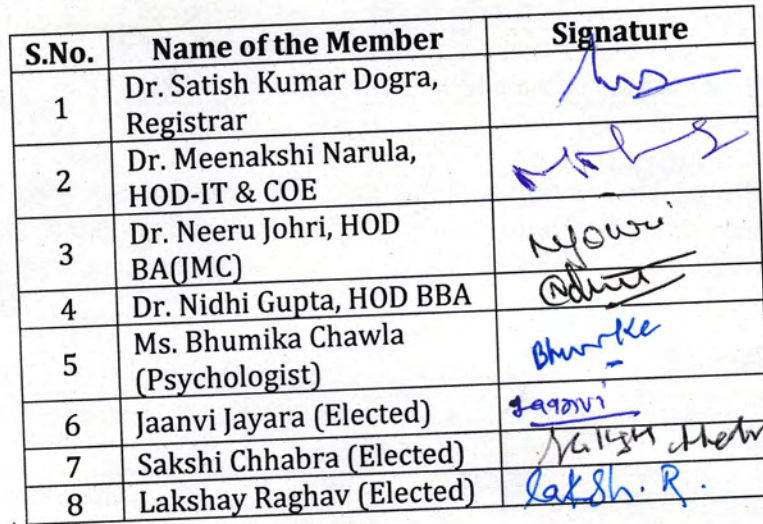 S.No. Name of the Member Signature
1 Dr. Satish Kumar Dogra,
Registrar
2 Dr. Meenakshi Narula,
HOD-IT & COE
3 Dr. Neeru Johri, HOD
BA(JMC)
4 Dr. Nidhi Gupta, HOD BBA
5 Ms. Bhumika Chawla
(Psychologist)
6 Jaanvi Jayara (Elected) Jaanvi
7 Sakshi Chhabra (Elected)
8 Lakshay Raghav (Elected) Laksh. R.